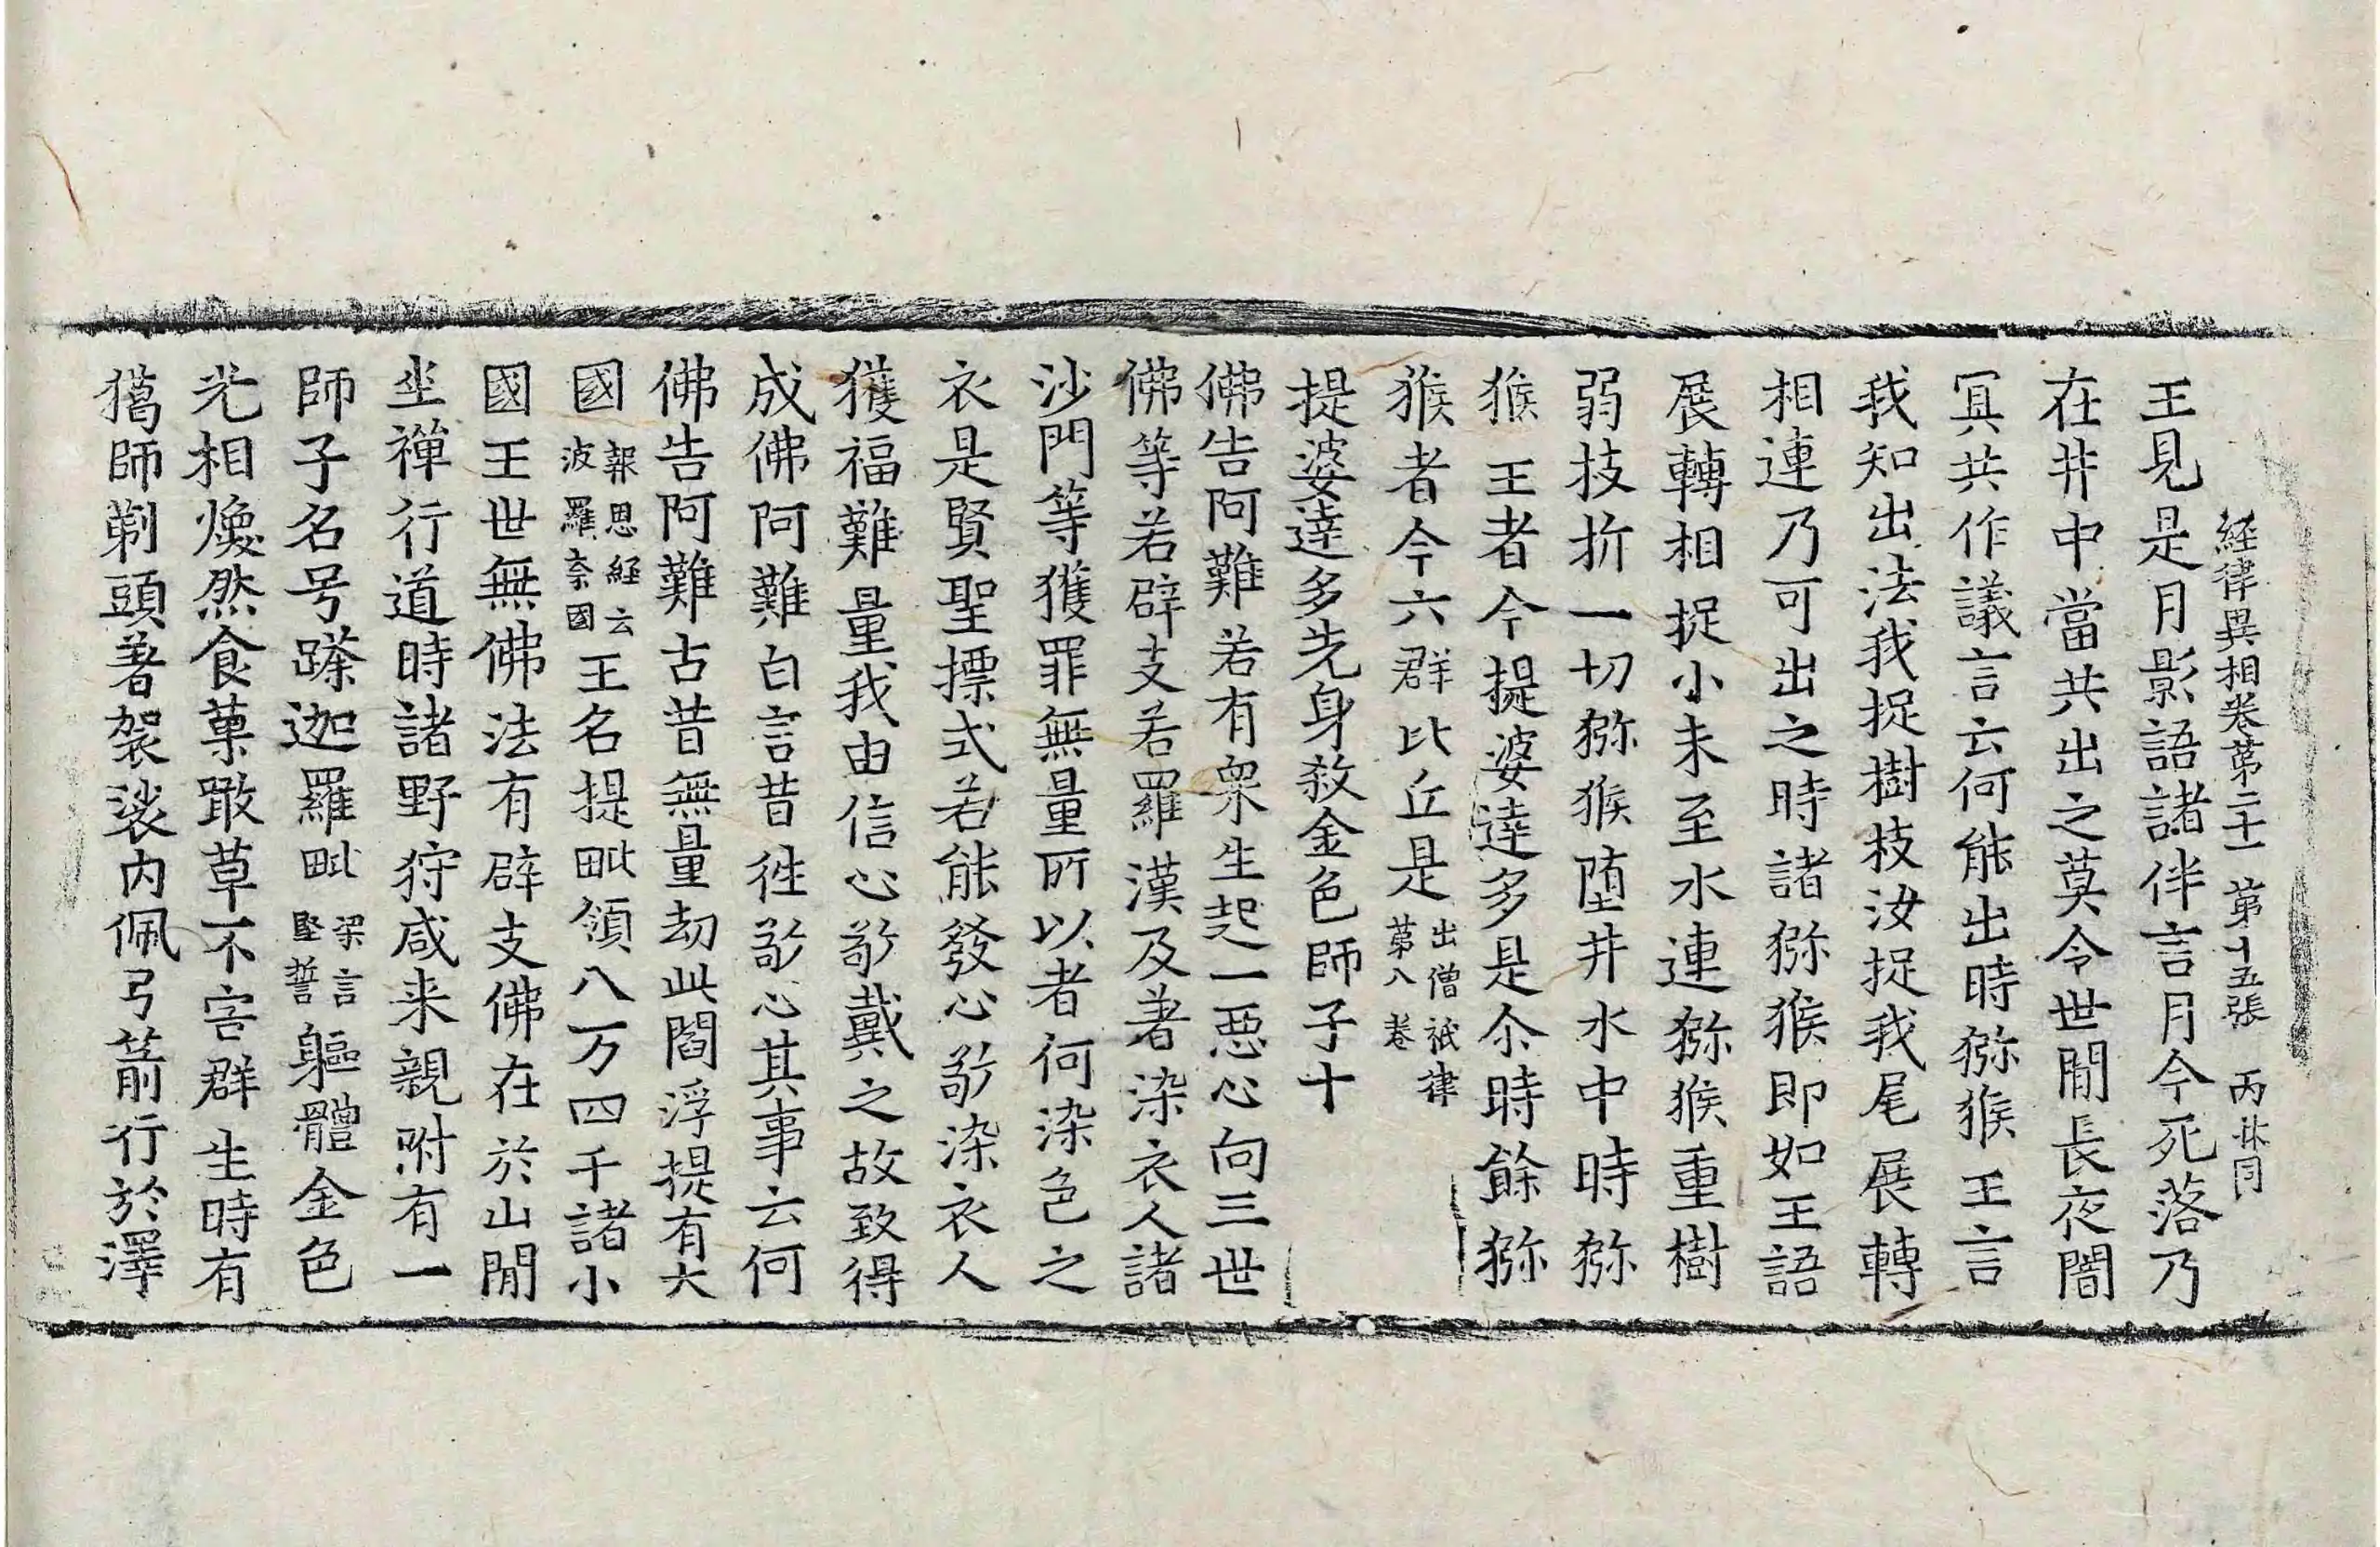 經律異相卷第二十一 第十五張 丙 林同
王見是月影語諸伴言月今死落乃
在井中當共出之莫令世閒長夜闇
冥共作議言云何能出時猕猴王言
我知出法我捉樹枝汝捉我尾展轉
相連乃可出之時諸猕猴即如王語
展轉相捉小未至水連猕猴重樹
弱技折一切猕猴墮井水中時猕
猴王者今提婆達多是尒時餘猕
猴者今六群比丘是出僧祇律第八卷
提婆達多先身殺金色師子十
佛告阿難若有衆生起一惡心向三世
佛等若辟支若羅漢及著染衣人諸
沙門等獲罪無量所以者何染色之
衣是賢聖摽式若能發心敬染衣人
獲福難量我由信心敬戴之故致得
成佛阿難白言昔徃敬心其事云何
佛告阿難古昔無量劫此閻浮提有大
國報恩經云波羅柰國王名提毗領八万四千諸小
國王世無佛法有辟支佛在於山閒
坐禪行道時諸野狩咸来親附有一
師子名号蹉迦羅毗梁言堅誓軀體金色
光相煥然食菓噉草不害群生時有
獵師剃頭著袈裟内佩弓箭行於澤